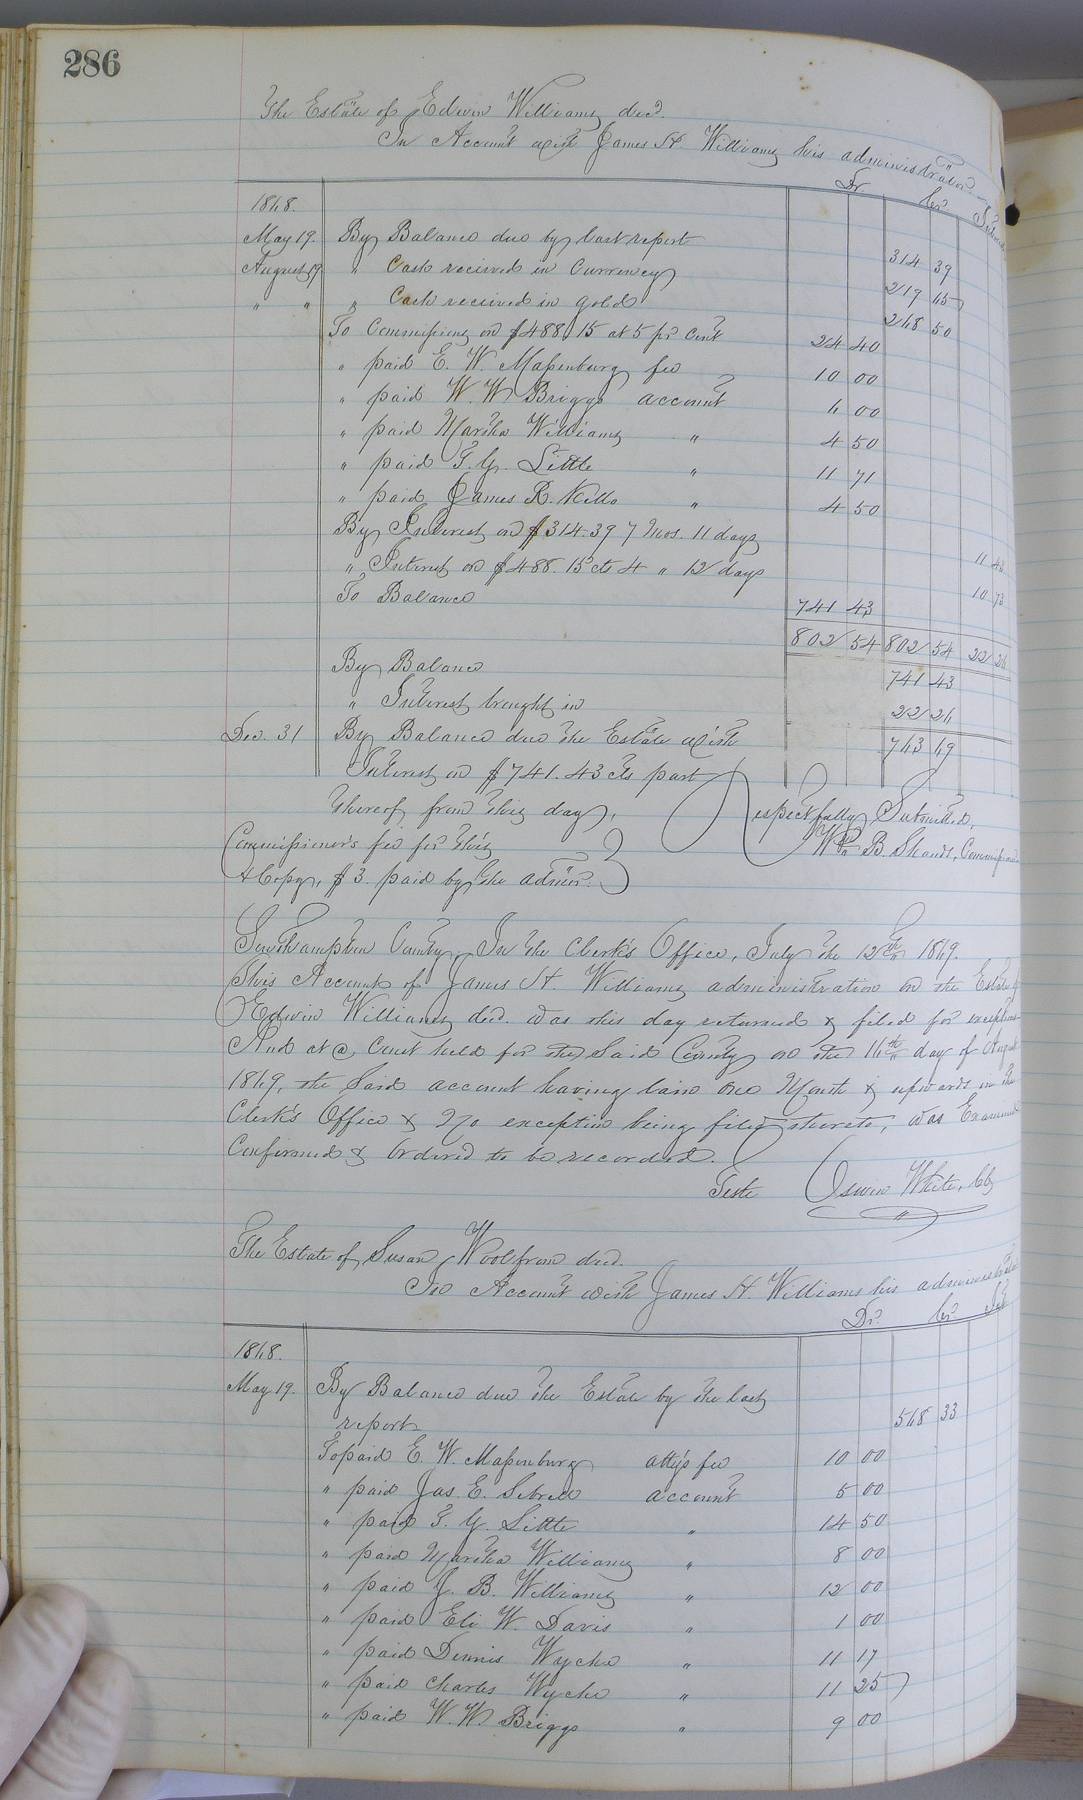 286
The Estate of Edwin Williams decd.
In Account with James H Williams his administrator
Dr Cr Interest
1868.
May 19. By Balance due by last report 314 39
August 19 " Cash received in Currency 219 65
" " " Cash received in gold 268 50
To Commissions on $488.15 at 5 pr Cent 24 40
" paid E. W. Massenburg fee 10 00
" paid W. W. Briggs account 6 00
" paid Martha Williams " 4 50
" paid T. Y. Little " 11 71
" paid James R. Kello " 4 50
By Interest on $314.39 7 Mos. 11 days 11
" Interest on $488.15 cts 4 " 12 days 10 73
To Balance 741 43
802 54 802 54 22 26
By Balance 741 43
" Interest brought in 22 26
Dec. 31 By Balance due the Estate with 763 69
Interest on $741.43 cts part
thereof from this day,
Respectfully Submitted,
Wm. B. Shands, Commissioner
Commissioner's fee for this
& Copy, $3. paid by the admor.
Southampton County, In the Clerk's Office, July the 12th 1869.
This Account of James H Williams administration on the Estate of
Edwin Williams decd. was this day returned & filed for exceptions
And at a Court held for the Said County on the 16th day of August
1869, the Said account having lain one Month & upwards in the
Clerk's Office & No exception being filed thereto, was Examined
Confirmed & Ordered to be recorded.
Teste Oswin White, Clk
The Estate of Susan Woolfron decd.
In Account with James H. Williams his administrator
Dr. Cr. Int
1868.
May 19. By Balance due the Estate by the last
report 568 33
To paid E. W. Massenburg atty's fee 10 00
" paid Jas. E. Sebrell account 5 00
" paid T. Y. Little " 14 50
" paid Martha Williams " 8 00
" paid J. B. Williams " 12 00
" paid Eli W. Davis " 1 00
" paid Dennis Wyche " 11 17
" paid Charles Wyche " 11 25
" paid W. W. Briggs " 9 00